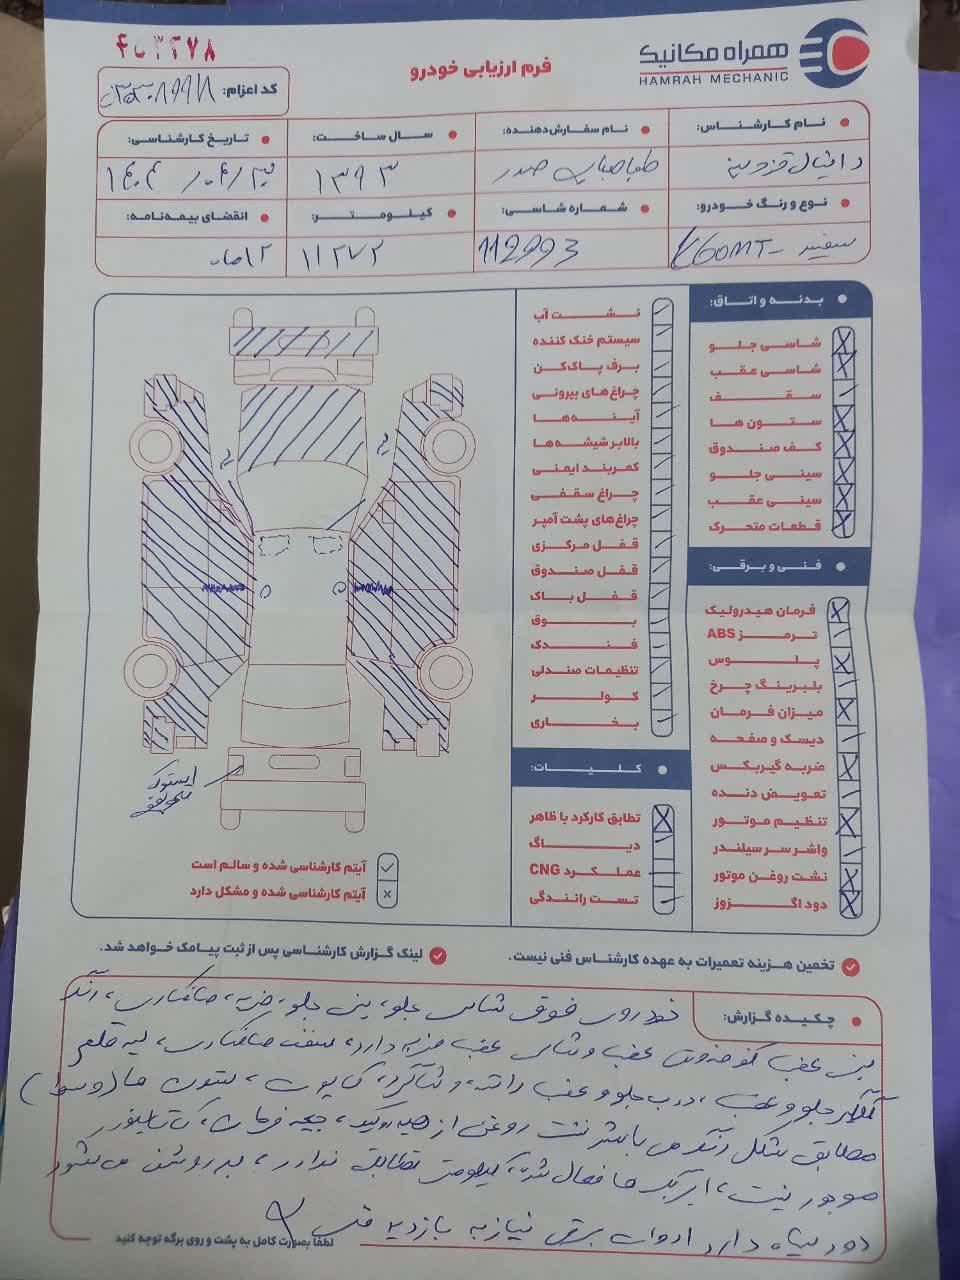 ۴۵۳۲۷۸
همراه مکانیک
HAMRAH MECHANIC
فرم ارزیابی خودرو
کد اعزام:
نام کارشناس:
نام سفارش‌دهنده:
سال ساخت:
تاریخ کارشناسی:
دانیال قزوینی
طباطبایی صدر
۱۳۹۳
نوع و رنگ خودرو:
شماره شاسی:
کیلومتر:
انقضای بیمه‌نامه:
سفید
112993
۱۱۲۷۲
۱۲ماه
بدنه و اتاق:
شاسی جلو
شاسی عقب
سقف
ستون ها
کف صندوق
سینی جلو
سینی عقب
قطعات متحرک
فنی و برقی:
فرمان هیدرولیک
ترمز ABS
پلوس
بلبرینگ چرخ
میزان فرمان
دیسک و صفحه
ضربه گیربکس
تعویض دنده
تنظیم موتور
واشر سر سیلندر
نشت روغن موتور
دود اگزوز
نشت آب
سیستم خنک کننده
برف پاک‌کن
چراغ‌های بیرونی
آینه‌ها
بالابر شیشه‌ها
کمربند ایمنی
چراغ سقفی
چراغ‌های پشت آمپر
قفل مرکزی
قفل صندوق
قفل باک
بوق
فندک
تنظیمات صندلی
کولر
بخاری
کلیات:
تطابق کارکرد با ظاهر
دیاگ
عملکرد CNG
تست رانندگی
آیتم کارشناسی شده و سالم است
آیتم کارشناسی شده و مشکل دارد
تخمین هزینه تعمیرات به عهده کارشناس فنی نیست.
لینک گزارش کارشناسی پس از ثبت پیامک خواهد شد.
چکیده گزارش:
خودروی فوق شاسی جلو، سینی جلو، ضربه، صافکاری،
سینی عقب کف صندوق عقب و شاسی عقب ضربه دارد، سقف صافکاری،
گلگیر جلو و عقب، درب جلو و عقب راننده و شاگرد، کاپوت، ستون ها
مطابق شکل رنگ می باشد نشت روغن از هیدرولیک، جعبه فرمان، کاتالیزور
موجود نیست، ایربگ ها فعال شده، کیلومتر تطابق ندارد، بد روشن می‌شود
دود سیاه دارد ادوات برقی نیاز به بازدید فنی
لطفا بصورت کامل به پشت و روی برگه توجه کنید